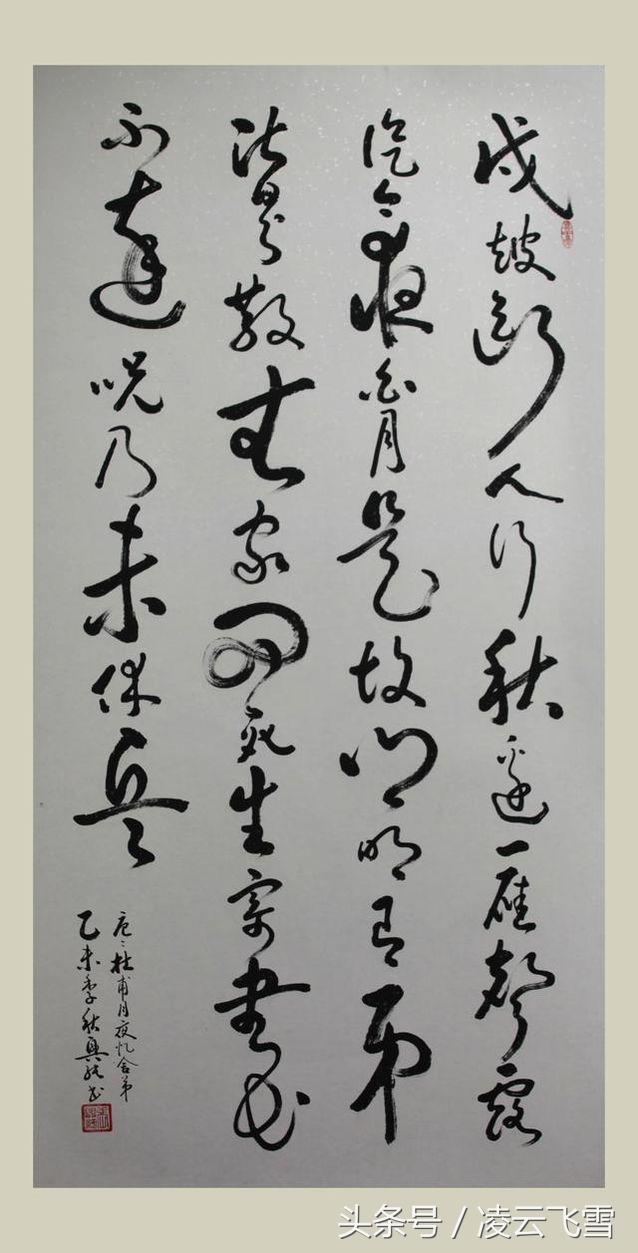 戍鼓斷人行秋邊一雁聲露
從今夜白月是故鄉明有弟
皆分散無家問死生寄書長
不達況乃未休兵
唐杜甫月夜憶舍弟
乙未季秋 书
头条号 / 凌云飞雪